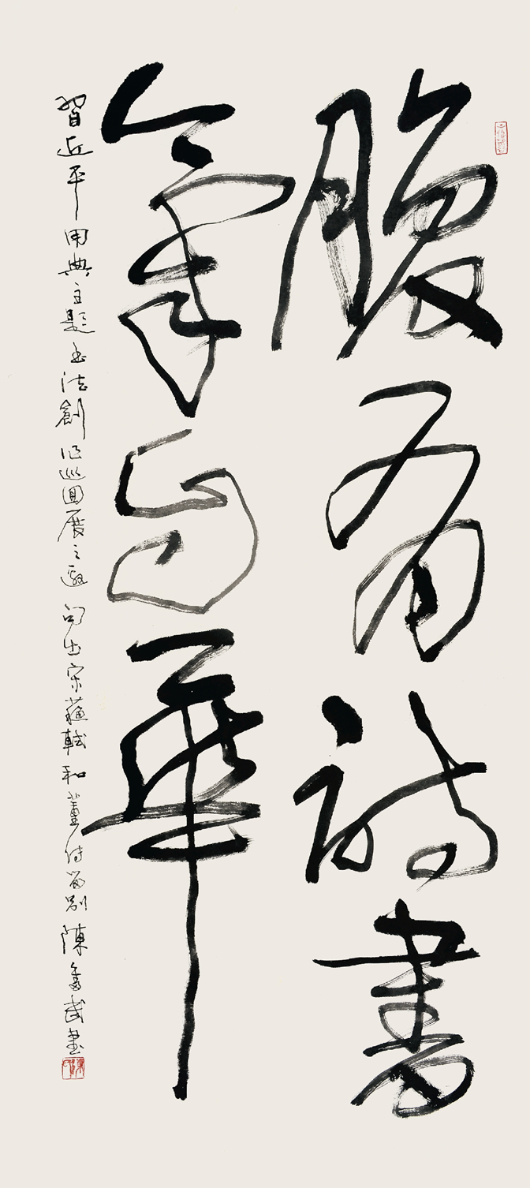 腹有詩書
氣自華
習近平用典主題書法創作巡回展之邀 句出宋蘇軾和董傳留別 陳書